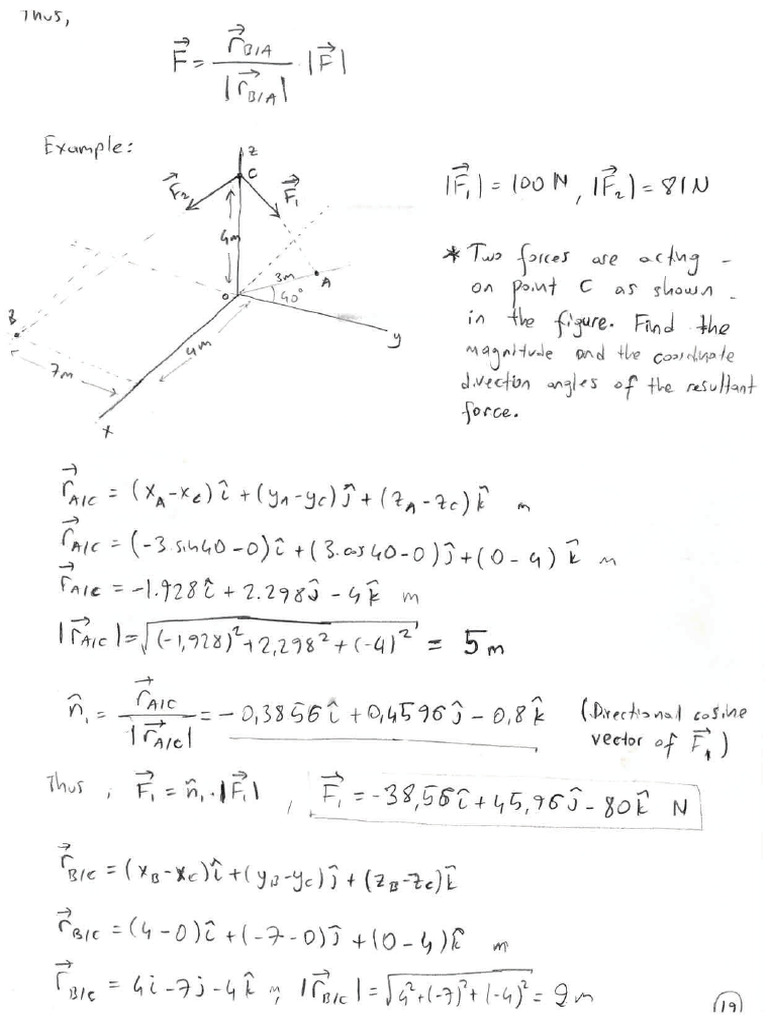 Thus,
F⃗ = r⃗B/A / |r⃗B/A| . |F⃗|
Example:
z
C
F⃗2
F⃗1
|F⃗1| = 100 N, |F⃗2| = 81N
4m
3m
A
O
40°
B
y
7m
4m
x
* Two forces are acting -
on point C as shown -
in the figure. Find the
magnitude and the coordinate
direction angles of the resultant
force.
r⃗A/C = (xA-xC)î + (yA-yC)ĵ + (zA-zC)k̂ m
r⃗A/C = (-3.sin40-0)î + (3.cos40-0)ĵ + (0-4)k̂ m
r⃗A/C = -1.928î + 2.298ĵ - 4k̂ m
|r⃗A/C| = √((-1,928)²+2,298²+(-4)²) = 5m
n̂1 = r⃗A/C / |r⃗A/C| = -0,3856î + 0,4596ĵ - 0,8k̂ (Directional cosine
vector of F⃗1)
Thus, F⃗1 = n̂1.|F⃗1| , F⃗1 = -38,56î + 45,96ĵ - 80k̂ N
r⃗B/C = (xB-xC)î + (yB-yC)ĵ + (zB-zC)k̂
r⃗B/C = (4-0)î + (-7-0)ĵ + (0-4)k̂ m
r⃗B/C = 4i - 7j - 4k̂ m, |r⃗B/C| = √(4²+(-7)²+(-4)²) = 9m
19